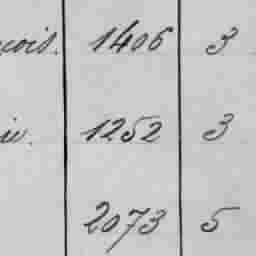 çois. 1406 3
ie. 1252 3
2073 5